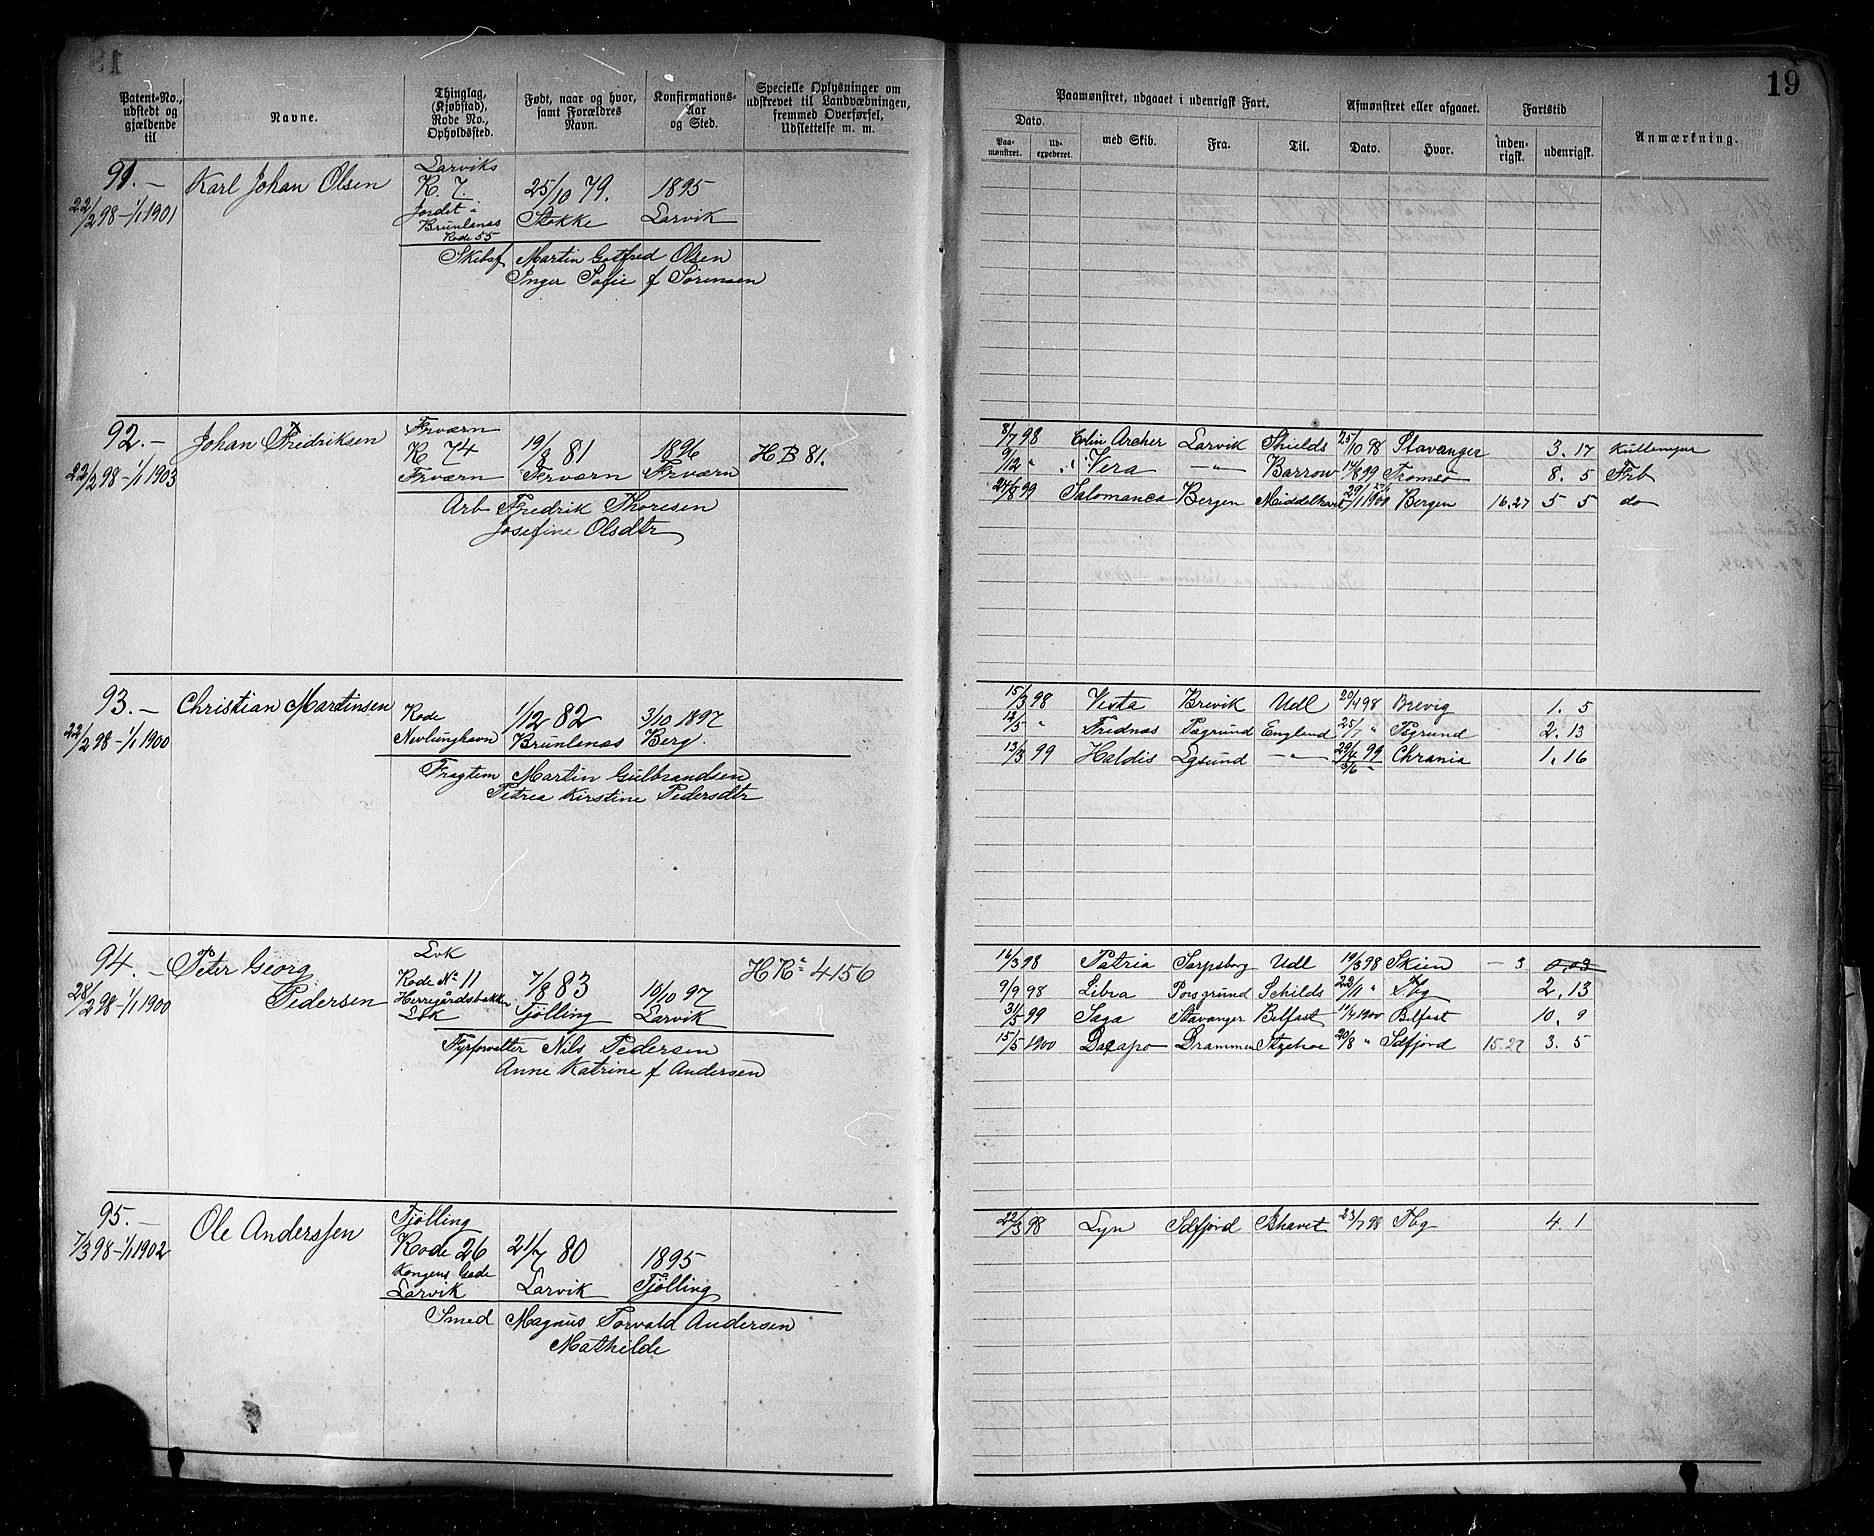 19
Patent-No., udstedt og gjældende til
Navne.
Thinglag, (Kjøbstad), Rode No., Opholdssted.
Født, naar og hvor, samt Forældres Navn.
Konfirmations-Aar og Sted.
Specielle Oplysninger om udskrevet til Landvæbningen, fremmed Overførsel, Udslettelse m. m.
Paamønstret, udgaaet i udenrigsk Fart.
Afmønstret eller afgaaet.
Fartstid
Dato.
Paa-mønstret.
Ud-expederet.
med Skib.
Fra.
Til.
Dato.
Hvor.
inden-rigsk.
udenrigsk.
Anmærkning.
91.— Karl Johan Olsen
22/2 98 – 1/1 1901
Larviks
R. 7. 25/10 79. 1895
Jordet i Stokke Larvik
Brunlanæs
Rode 55
Skibsf Martin Gotfred Olsen
Inger Sofie f Sørensen
92.— Johan Fredriksen
22/2 98 – 1/1 1903
Frværn
R 74 19/8 81 1896 HB 81.
Frværn Frværn Frværn
Arb Fredrik Thoresen
Josefine Olsdtr
8/7 98 Colin Archer Larvik Shields 25/10 98 Stavanger 3. 17
9/12 " Vera —"— Barrow 14/8 99 Tromsø 8. 5 Frb
24/8 99 Salomanca Bergen Middelhavet 29/1 1900 Bergen 16.27 5 5 do
93.— Christian Martinsen
22/2 98 – 1/1 1900
Rode 1/12 82 3/10 1897
Nevlunghavn Brunlanæs Berg.
Fragtem Martin Gulbrandsen
Petrea Kirstine Pedersdtr
15/3 98 Vesta Brevik Udl 20/4 98 Brevig 1. 5
12/5 " Frednæs Psgrund England 25/7 " Psgrund 2. 13
13/3 99 Haldis Lgsund —"— 29/4 99 Chrania 1. 16
3/6 "
94.— Peter Georg Pedersen
28/2 98 – 1/1 1900
Lvk
Rode No 11 7/8 83 10/10 97 HR 4156
Herregårdsbakken
Lvk Tjølling Larvik
Fyrforvalter Nils Pedersen
Anne Katrine f Andersen
16/3 98 Patria Sarpsborg Udl 19/3 98 Skien – 3 0,03
9/9 98 Libra Porsgrund Schilds 22/11 " Tbg 2. 13
31/5 99 Saga Stavanger Belfast 14/4 1900 Belfast 10. 9
15/5 1900 Dacapo Drammen Itzehoe 20/8 " Sdfjord 15.27 3. 5
95.— Ole Anderssen
7/3 98 – 1/1 1902
Tjølling
Rode 26 21/7 80 1895
Kongens Gade
Larvik Larvik Tjølling
Smed Magnus Torvald Andersen
Mathilde
22/3 98 Lyn Sdfjord Ishavet 23/7 98 Tbg 4. 1